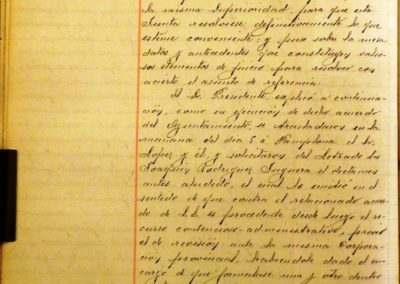 la misma Superioridad, para que esta
Junta resolviese definitivamente lo que
estime conveniente; y puso sobre la mesa
datos y antecedentes que constituyen valio-
sos elementos de juicio para resolver con
acierto el asunto de referencia.
El Sr. Presidente explicó a continua-
ción, como en ejecución de dicho acuerdo
del Ayuntamiento, se trasladaron en la
mañana del dia 5 á Pamplona el Sr.
López y él, y solicitaron del Letrado Sr.
Joaquin Rodriguez el dictamen
antes aludido, el cual lo emitió en el
sentido de que contra el relacionado acuer-
do de S.E. es procedente desde luego el re-
curso contencioso-administrativo, previo
el de revisión ante la misma Corpora-
ción provincial, habiendole dado el en-
cargo de que formulase uno y otro dentro